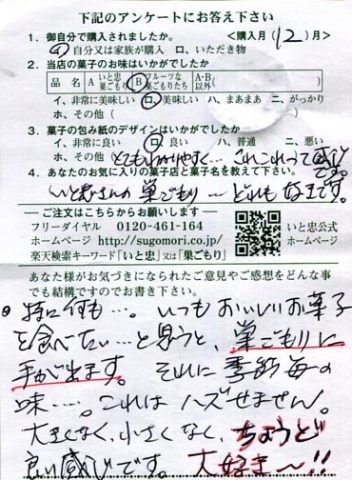 下記のアンケートにお答え下さい
1. 御自分で購入されましたか。 <購入月(12)月>
イ 自分又は家族が購入 ロ、いただき物
2. 当店の菓子のお味はいかがでしたか
品名 A いと忠 巣ごもり B フルーツな 巣ごもりたち A・B 以外( )
イ、非常に美味しい ロ、美味しい ハ、まあまあ ニ、がっかり
ホ、その他( )
3. 菓子の包み紙のデザインはいかがでしたか
イ、非常に良い ロ、良い ハ、普通 ニ、悪い
ホ、その他( とてもわかりやすく… これこれって感じです。
4. あなたのお気に入りの菓子店と菓子名を教えて下さい。
いと忠さんの巣ごもり ー どれも好きです。
ご注文はこちらからお願いします
フリーダイヤル 0120-461-164
ホームページ http://sugomori.co.jp/
楽天検索キーワード「いと忠」又は「巣ごもり」
いと忠公式
ホームページ
あなた様がお気づきになられたご意見やご感想をどんな事
でも結構ですのでお書き下さい。
特に何も…。いつもおいしいお菓子
を食べたい…と思うと、巣ごもりに
手が出ます。それに季節毎の
味…。これはハズせません。
大きくなく、小さくなく、ちょうど
良い感じです。大好き〜!!